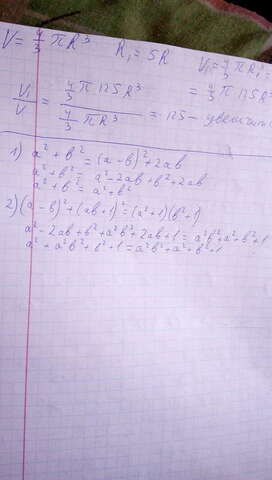 V = 4/3 πR³ R₁ = 5R V₁ = 4/3 πR₁³
= 4/3 π125R³
V₁/V = (4/3 π125R³)/(4/3 πR³) = 125 -
1) a² + b² = (a - b)² + 2ab
a² + b² = a² - 2ab + b² + 2ab
a² + b² = a² + b²
2) (a - b)² + (ab + 1)² = (a² + 1)(b² + 1)
a² - 2ab + b² + a²b² + 2ab + 1 = a²b² + a² + b² + 1
a² + a²b² + b² + 1 = a²b² + a² + b² + 1